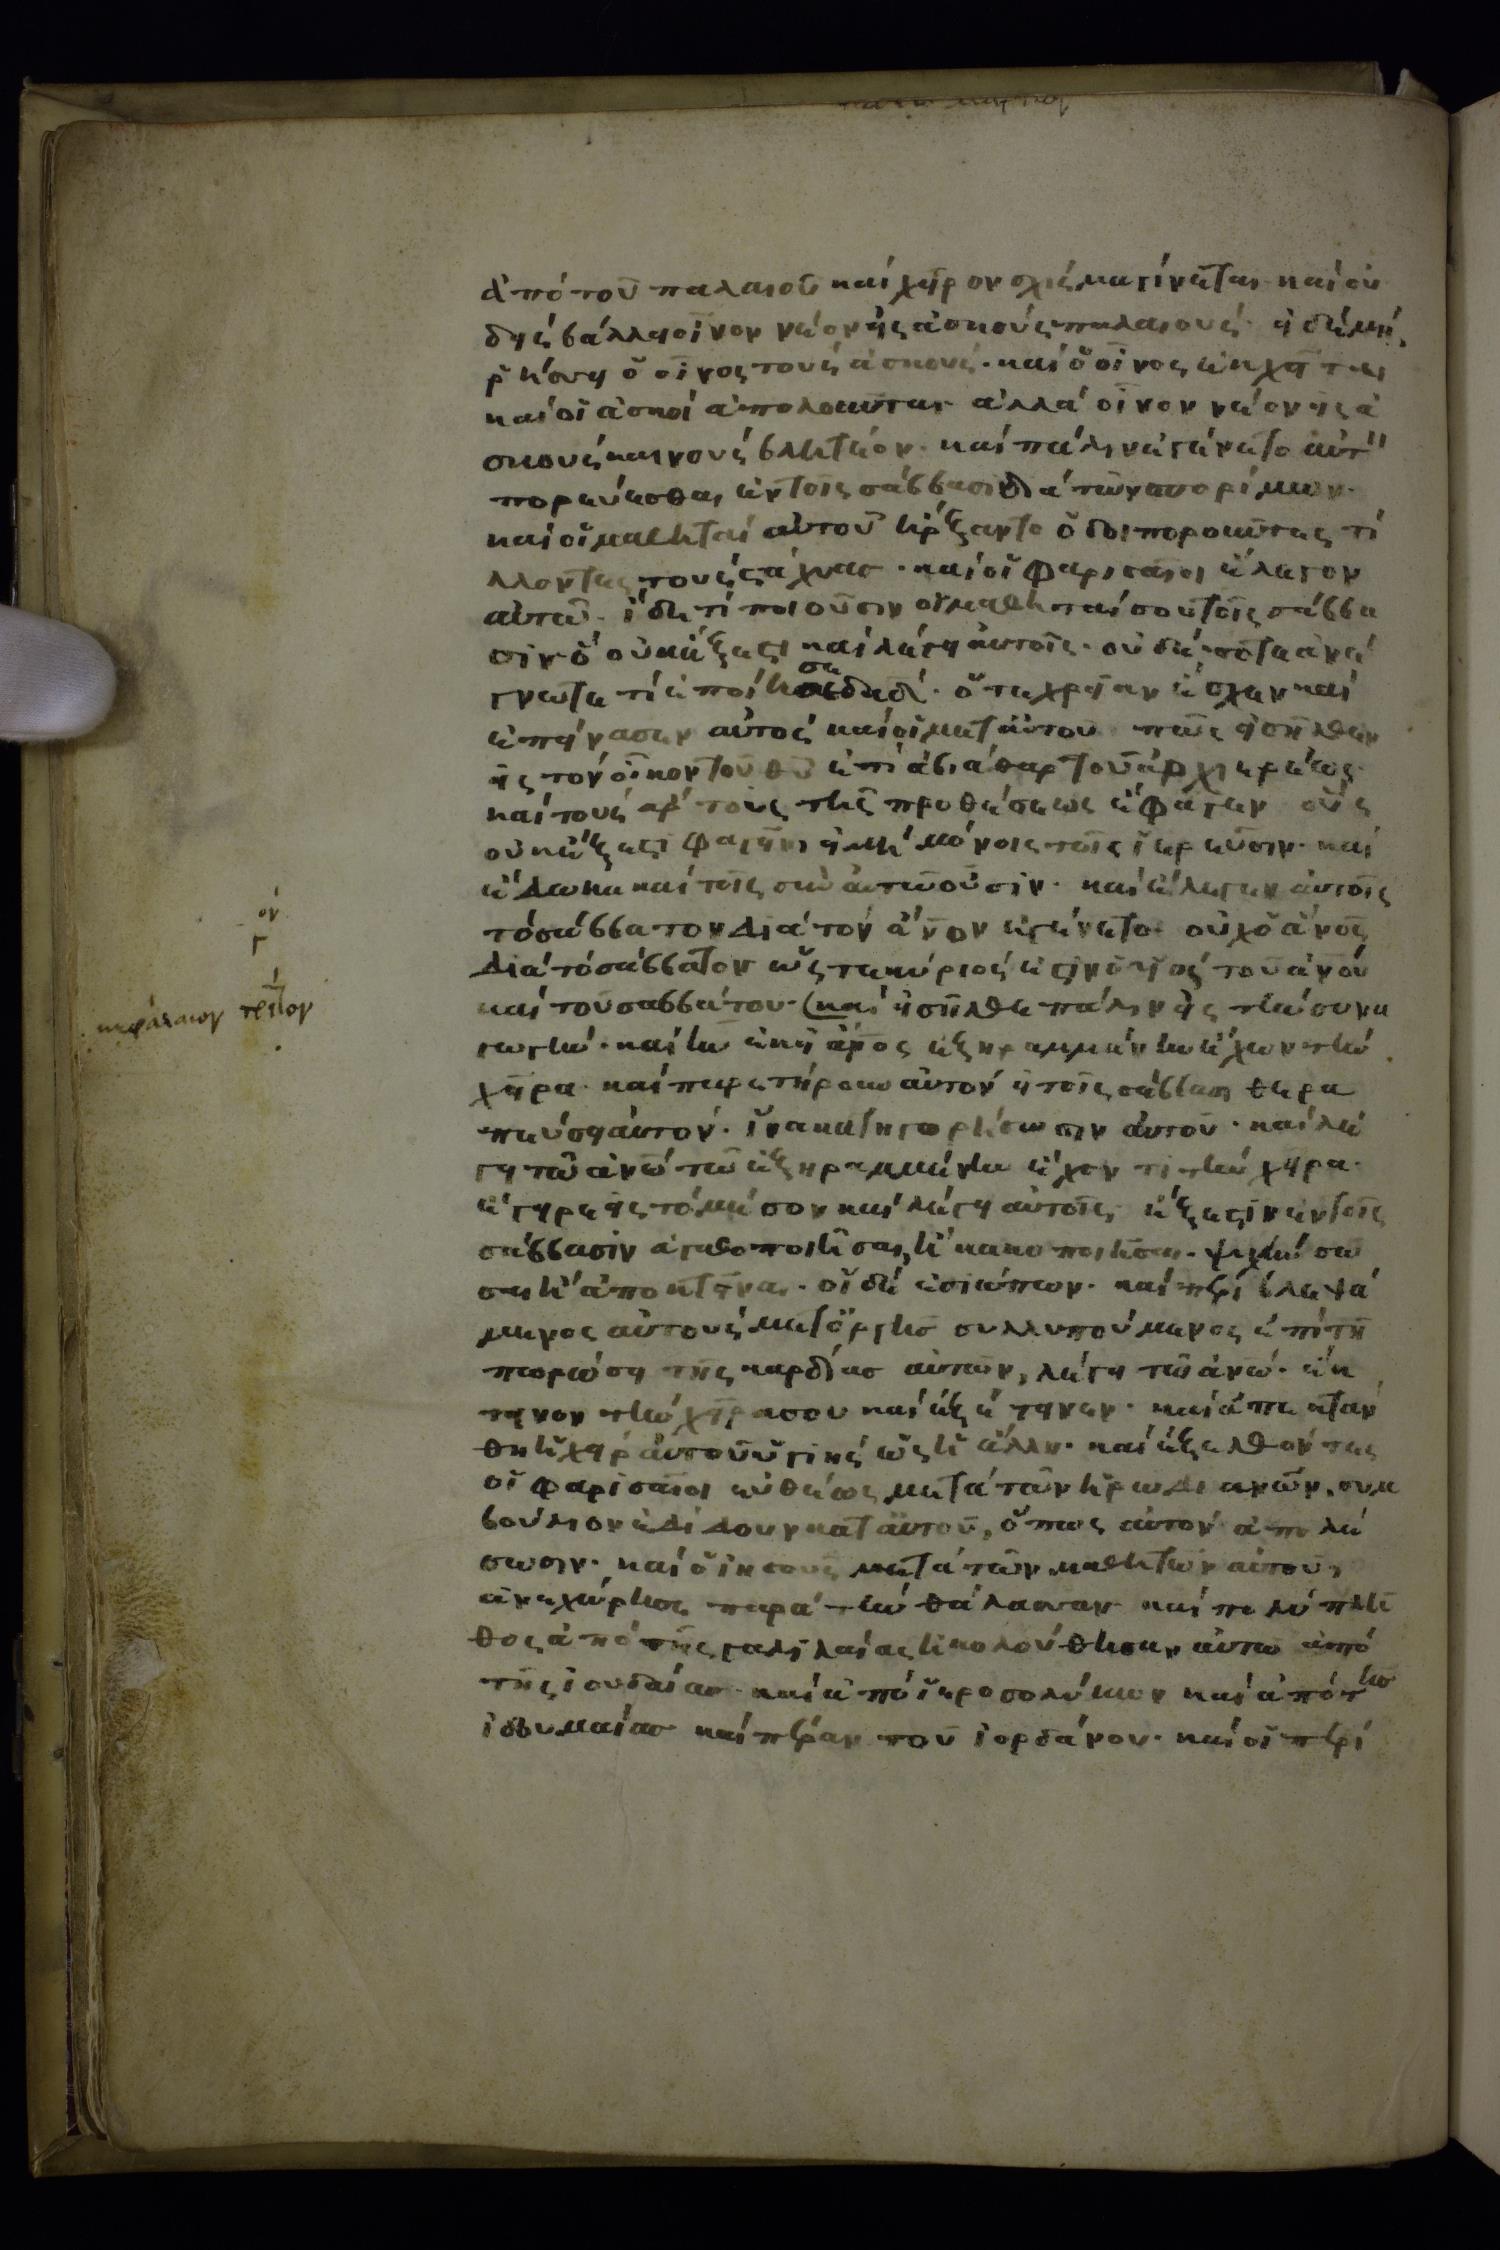 ἀπό τοῦ παλαιοῦ καί χεῖρον σχίσμα γίνεται· καί οὐ
δείς βάλλει οἶνον νέον εἰς ἀσκούς παλαιούς· εἰ δέ μή,
ῥήσσει ὁ οἶνος τούς ἀσκούς· καί ὁ οἶνος ἐκχεῖται
καί οἱ ἀσκοί ἀπολοῦνται· ἀλλά οἶνον νέον εἰς ἀ
σκούς καινούς βλητέον· καί πάλιν ἐγένετο αὐτ
πορεύεσθαι ἐν τοῖς σάββασιν διά τῶν σπορίμων·
καί οἱ μαθηταί αὐτοῦ ἤρξαντο ὁδοιποροῦντες τί
λλοντες τούς στάχυας· καί οἱ φαρισαῖοι ἔλεγον
αὐτῶ· ἴδε τί ποιοῦσιν οἱ μαθηταί σου τοῖς σάββα
σιν ὅ οὐκ ἔξεστι καί λέγει αὐτοῖς· οὐδέποτε ἀνέ
γνωτε τί ἐποίησε δαδ· ὅτε χρείαν ἔσχεν καί
ἐπείνασεν αὐτός καί οἱ μετ αὐτοῦ πῶς εἰσῆλθεν
εἰς τόν οἶκον τοῦ θυ ἐπί ἀβιάθαρ τοῦ ἀρχιερέως
καί τούς ἄρτους τῆς προθέσεως ἔφαγεν οὕς
οὐκ ἔξεστι φαγεῖν εἰ μή μόνοις τοῖς ἱερεῦσιν· καί
ἔδωκε καί τοῖς σύν αὐτῶ οὖσιν· καί ἔλεγεν αὐτοῖς
τό σάββατον διά τόν ἄνον ἐγένετο· οὐχ ὁ ἄνος
διά τό σάββατον ὥστε κύριός ἐστιν ὁ υἱός τοῦ ἀνου
καί τοῦ σαββάτου· καί εἰσῆλθε πάλιν εἰς τήν συνα
γωγήν· καί ἦν ἐκεῖ ἄνος ἐξηραμμένην ἔχων τήν
χεῖρα· καί παρετήρουν αὐτόν εἰ τοῖς σάββασι θερα
πεύσει αὐτόν· ἵνα κατηγορήσωσιν αὐτοῦ· καί λέ
γει τῶ ἀνω τῶ ἐξηραμμένην ἔχοντι τήν χεῖρα·
ἔγειρε εἰς τό μέσον καί λέγει αὐτοῖς, ἔξεστιν ἐν τοῖς
σάββασιν ἀγαθοποιῆσαι, ἤ κακοποιῆσαι· ψυχήν σῶ
σαι ἤ ἀποκτεῖναι· οἱ δέ ἐσιώπων· καί περιβλεψά
μενος αὐτούς μετ ὀργῆσ συλλυπούμενος ἐπί τῆ
πωρώσει τῆς καρδίασ αὐτῶν, λέγει τῶ ἀνω· ἔκ
τεινον τήν χεῖρα σου καί ἐξέτεινεν· καί ἀπεκατεσ
θη ἡ χείρ αὐτοῦ ὑγιής ὡς ἡ ἄλλη· καί ἐξελθόντες
οἱ φαρισαῖοι εὐθέως μετά τῶν ἡρωδιανῶν, συμ
βούλιον ἐδίδουν κατ αὐτοῦ, ὅπως αὐτόν ἀπολέ
σωσιν· καί ὁ ἰησοῦς μετά τῶν μαθητῶν αὐτοῦ,
ἀνεχώρησε παρά τήν θάλασσαν καί πολύ πλῆ
θος ἀπό τῆς γαλιλαίας ἠκολούθησαν αὐτῶ ἀπό
τῆς ἰουδαίασ· καί ἀπό ἱεροσολύμων καί ἀπό τῆσ
ἰδουμαίασ καί πέραν τοῦ ἰορδάνου· καί οἱ περί
όν
Γ
κεφάλαιον τρίτον